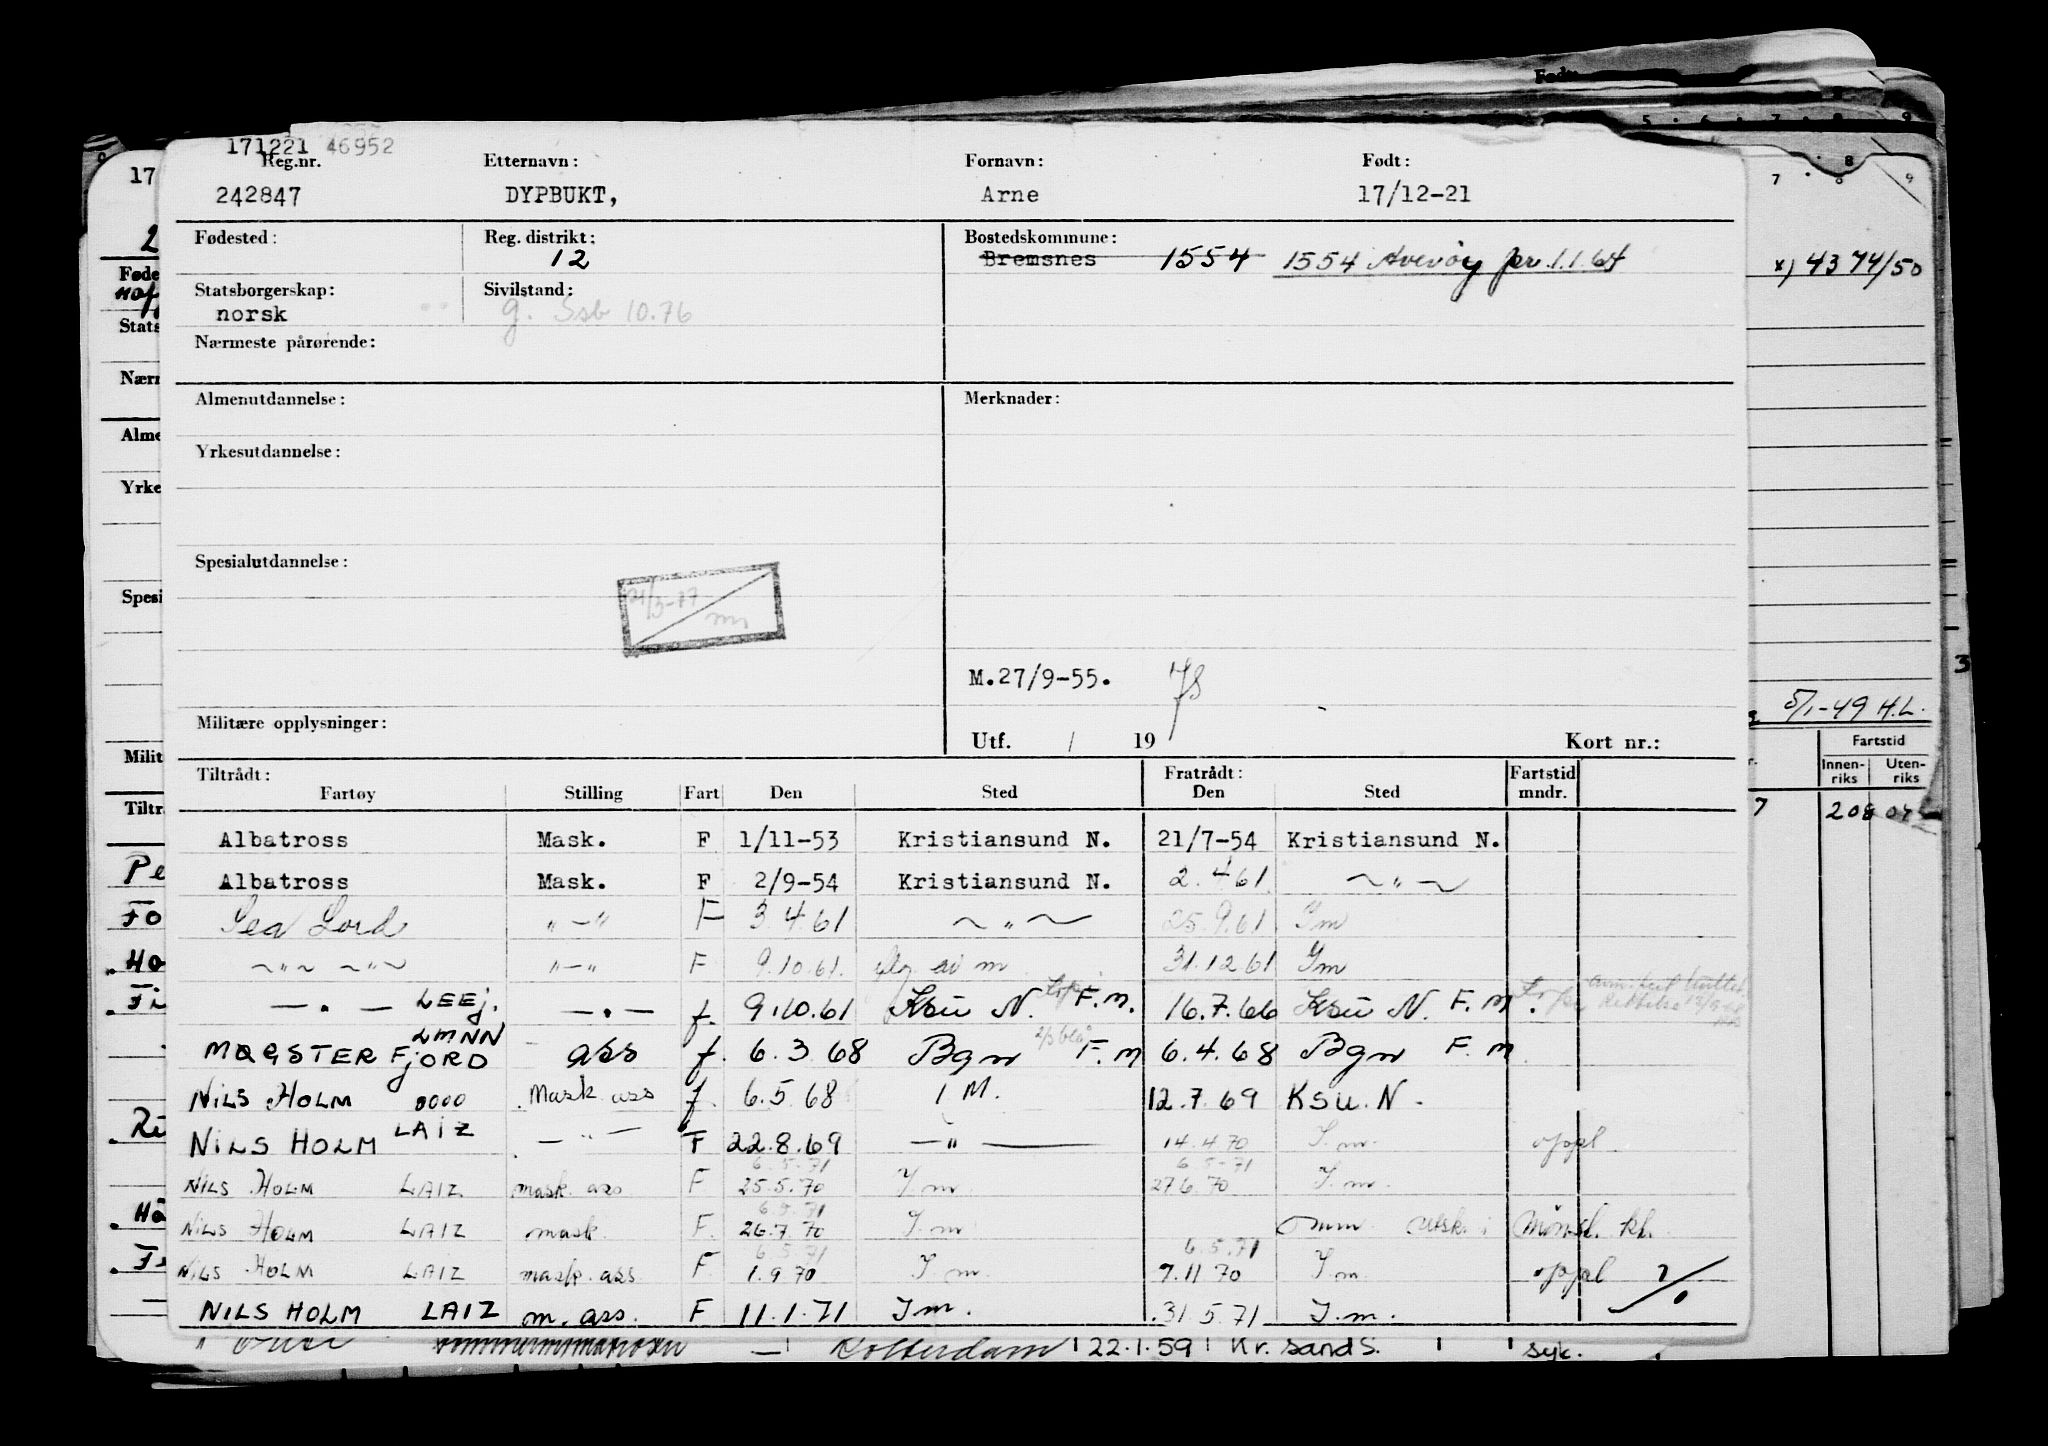 171221 46952
Reg.nr. Etternavn: Fornavn: Født:
242847 DYPBUKT, Arne 17/12-21
Fødested: Reg. distrikt: Bostedskommune:
12 Bremsnes 1554 1554 Averøy pr. 1.1.64
Statsborgerskap: Sivilstand:
norsk g. Ssb 10.76
Nærmeste pårørende:
Almenutdannelse: Merknader:
Yrkesutdannelse:
Spesialutdannelse:
21/3-77
M.27/9-55.
Militære opplysninger:
Utf. / 19 Kort nr.:
Tiltrådt: Fratrådt: Fartstid
Fartøy Stilling Fart Den Sted Den Sted mndr.
Albatross Mask. F 1/11-53 Kristiansund N. 21/7-54 Kristiansund N.
Albatross Mask. F 2/9-54 Kristiansund N. 2.4 61 ~ " ~
Sea Lord " — " F 3.4.61 ~ " ~ 25.9.61 I m
~ " ~ ~ " ~ " — " F 9.10.61. av m 31.12 61 I m
— " — LEEJ. — " — f. 9.10.61 Ksu N. F.M. 16.7.66 Ksu N. F.M.
LMNN
MAGSTERFJORD ass f. 6.3.68 Bgn F.M 6.4.68 Bgn F.M.
NILS HOLM Mask. ass f. 6.5.68 I M. 12.7.69 KSU.N.
NILS HOLM LAIZ — " — F 22.8.69 — " — 14.4.70 I.m. oppl
6.5.71 6.5-71
NILS HOLM LAIZ mask. ass F. 25.5.70 I m 27 6.70 I.m.
6.5.71
NILS HOLM LAIZ mask. F. 26.7.70 I.m mønstr. kl.
6.5.71 6.5.71
NILS HOLM LAIZ mask. ass F. 1.9.70 I m. 7.11 70 I m oppl
NILS HOLM LAIZ m. ass. F 11.1.71 I m. 31.5.71 I.m.
Rotterdam 22.1.59 Kr. sand S. syk.
17
Føde
Stats
Nærn
Alme
Yrke
Spesi
Milit
Tiltrå
Pe
Fo
Ho
Fi
Ri
Hå
Født
5 6 7 8 9
7 8 9
x) 4374/50
3
5/1-49 H.L.
Fartstid
Innen-riks Uten-riks
7 208